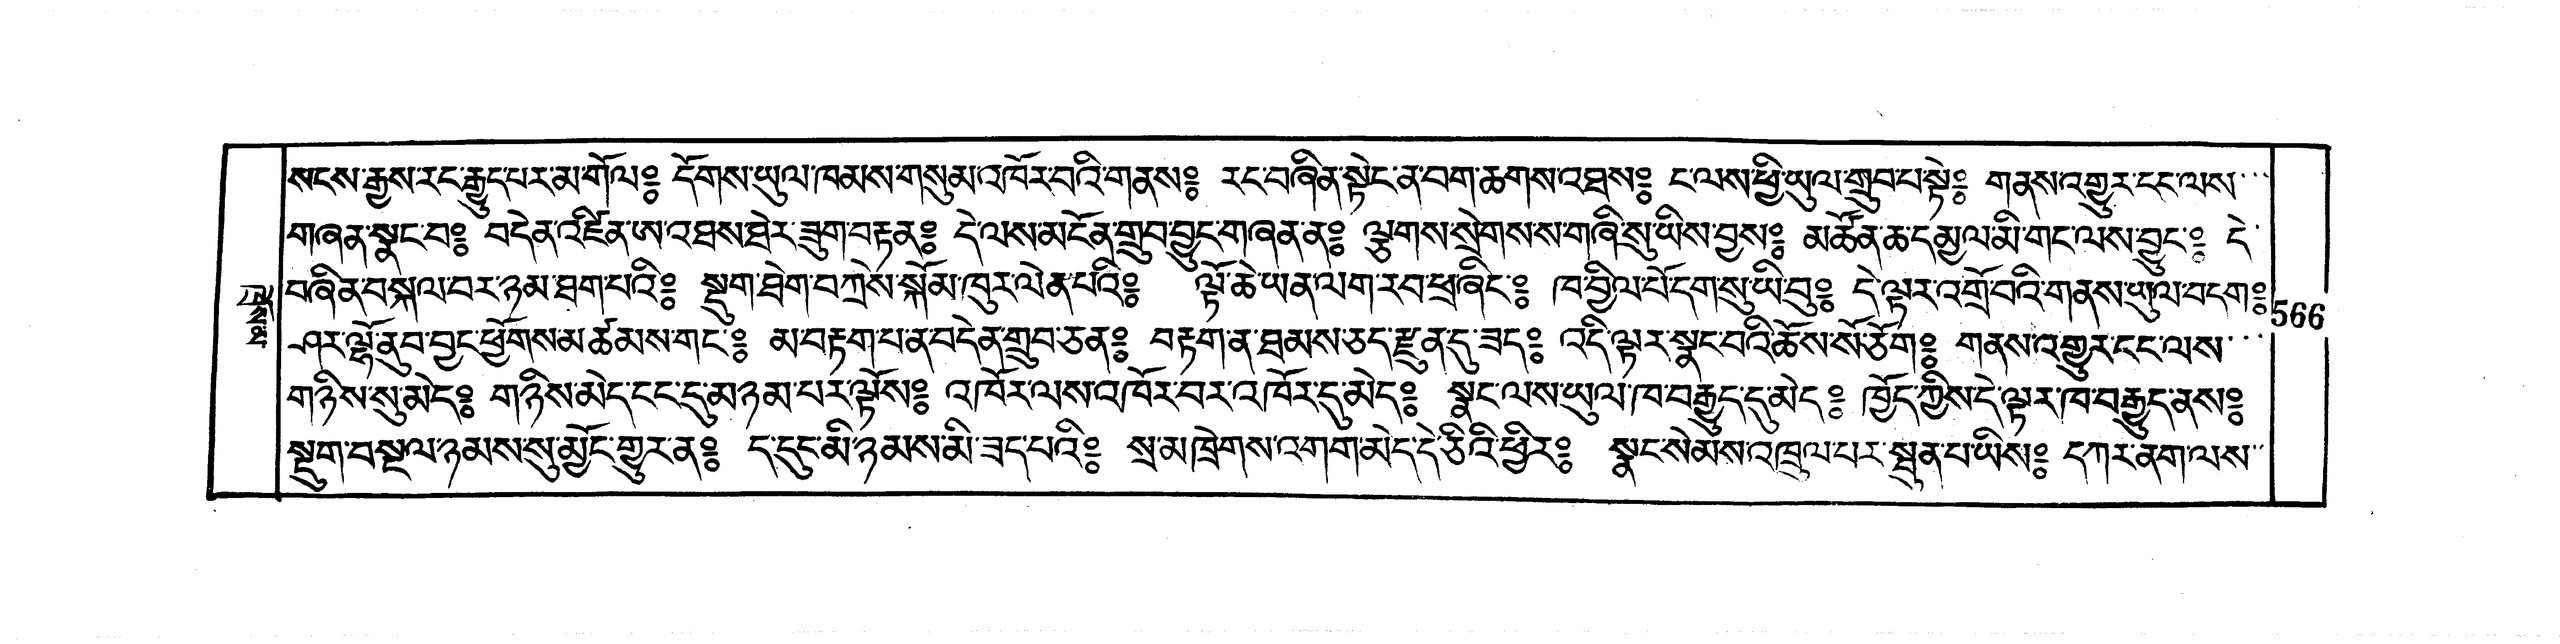 སངས་རྒྱས་རང་རྒྱུད་པར་མ་གོལ༔ དོགས་ཡུལ་ཁམས་གསུམ་འཁོར་བའི་གནས༔ རང་བཞིན་སྟེང་ན་བག་ཆགས་འཐས༔ ང་ལས་ཕྱི་ཡུལ་གྲུབ་པ་སྟེ༔ གནས་འགྱུར་ངང་ལས་་་
གཞན་སྣང་བ༔ བདེན་འཛིན་ཨ་འཐས་ཐེར་ཟུག་བརྟན༔ དེ་ལས་མངོན་གྲུབ་བྱུང་གཞན་ན༔ ལྕགས་སྲེགས་ས་གཞི་སུ་ཡིས་བྱས༔ མཚོན་ཆ་དམྱལ་མི་གང་ལས་བྱུང་༔ དེ་
བཞིན་བསྐལ་བར་ཉམ་ཐག་པའི༔ སྡུག་ཐེག་བཀྲེས་སྐོམ་ཁུར་ལེན་པའི༔ ལྟོ་ཆེ་ཡན་ལག་རབ་ཕྲ་ཞིང་༔ ཁ་བྱིལ་པོ་དག་སུ་ཡི་བུ༔ དེ་ལྟར་འགྲོ་བའི་གནས་ཡུལ་བདག༔
ཤར་ལྷོ་ནུབ་བྱང་ཕྱོགས་མཚམས་གང་༔ མ་བརྟག་པ་ན་བདེན་གྲུབ་ཅན༔ བརྟག་ན་ཐམས་ཅད་རྫུན་དུ་ཟད༔ འདི་ལྟར་སྣང་བའི་ཆོས་སོ་ཅོག༔ གནས་འགྱུར་ངང་ལས་་་
གཉིས་སུ་མེད༔ གཉིས་མེད་ངང་དུ་མཉམ་པར་ལྟོས༔ འཁོར་ལས་འཁོར་བར་འཁོར་དུ་མེད༔ སྣང་ལས་ཡུལ་ཁ་བརྒྱུད་དུ་མེད༔ ཁྱོད་ཀྱིས་དེ་ལྟར་ཁ་བརྒྱུད་ནས༔
སྡུག་བསྔལ་ཉམས་སུ་མྱོང་གྱུར་ན༔ ད་དུང་མི་ཉམས་མི་ཟད་པའི༔ སྲ་མ་ཁྲེགས་འགག་མེད་དེ་ཅིའི་ཕྱིར༔ སྣང་སེམས་འཁྲུལ་པར་སྦྲན་པ་ཡིས༔ དཀར་ནག་ལས་་
566